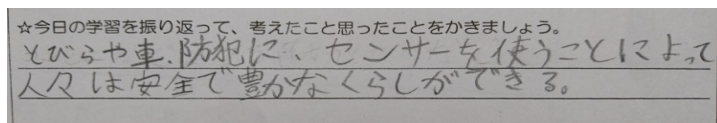 ☆今日の学習を振り返って、考えたこと思ったことをかきましょう。
とびらや車、防犯に、センサーを使うことによって
人々は安全で豊かなくらしができる。